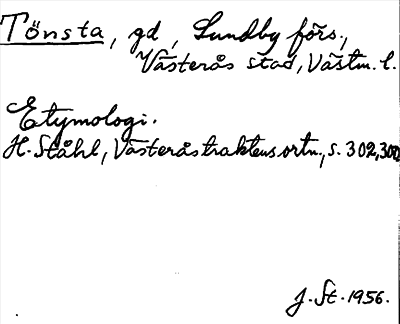 Tönsta, gd, Lundby förs.,
Västerås stad, Västm. l.
Etymologi.
H. Ståhl, Västeråstraktens ortn., s. 302, 300
J. St. 1956.